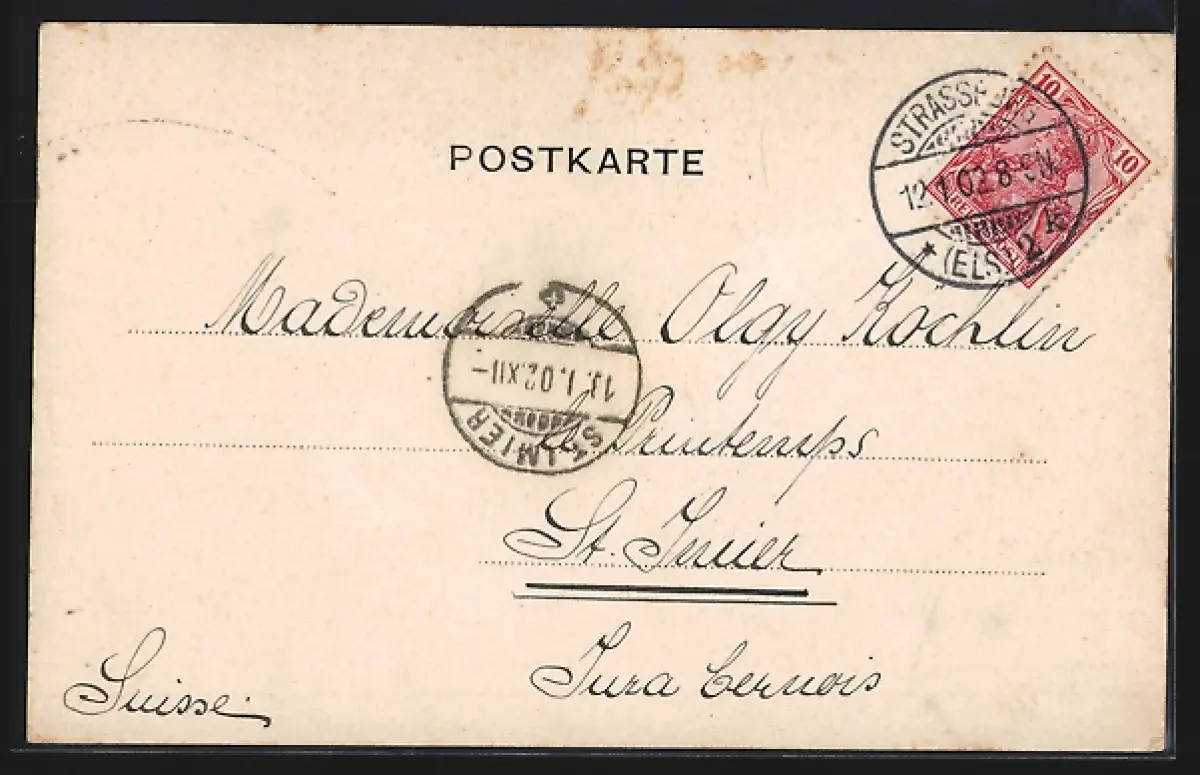 POSTKARTE
10
10
12.1.02.8-9N.
* (ELS.) 2 k
Mademoiselle Olgy Kochlin
13.1.02.XII-
ST. IMIER
le Printemps
St. Imier
Jura bernois
Suisse.